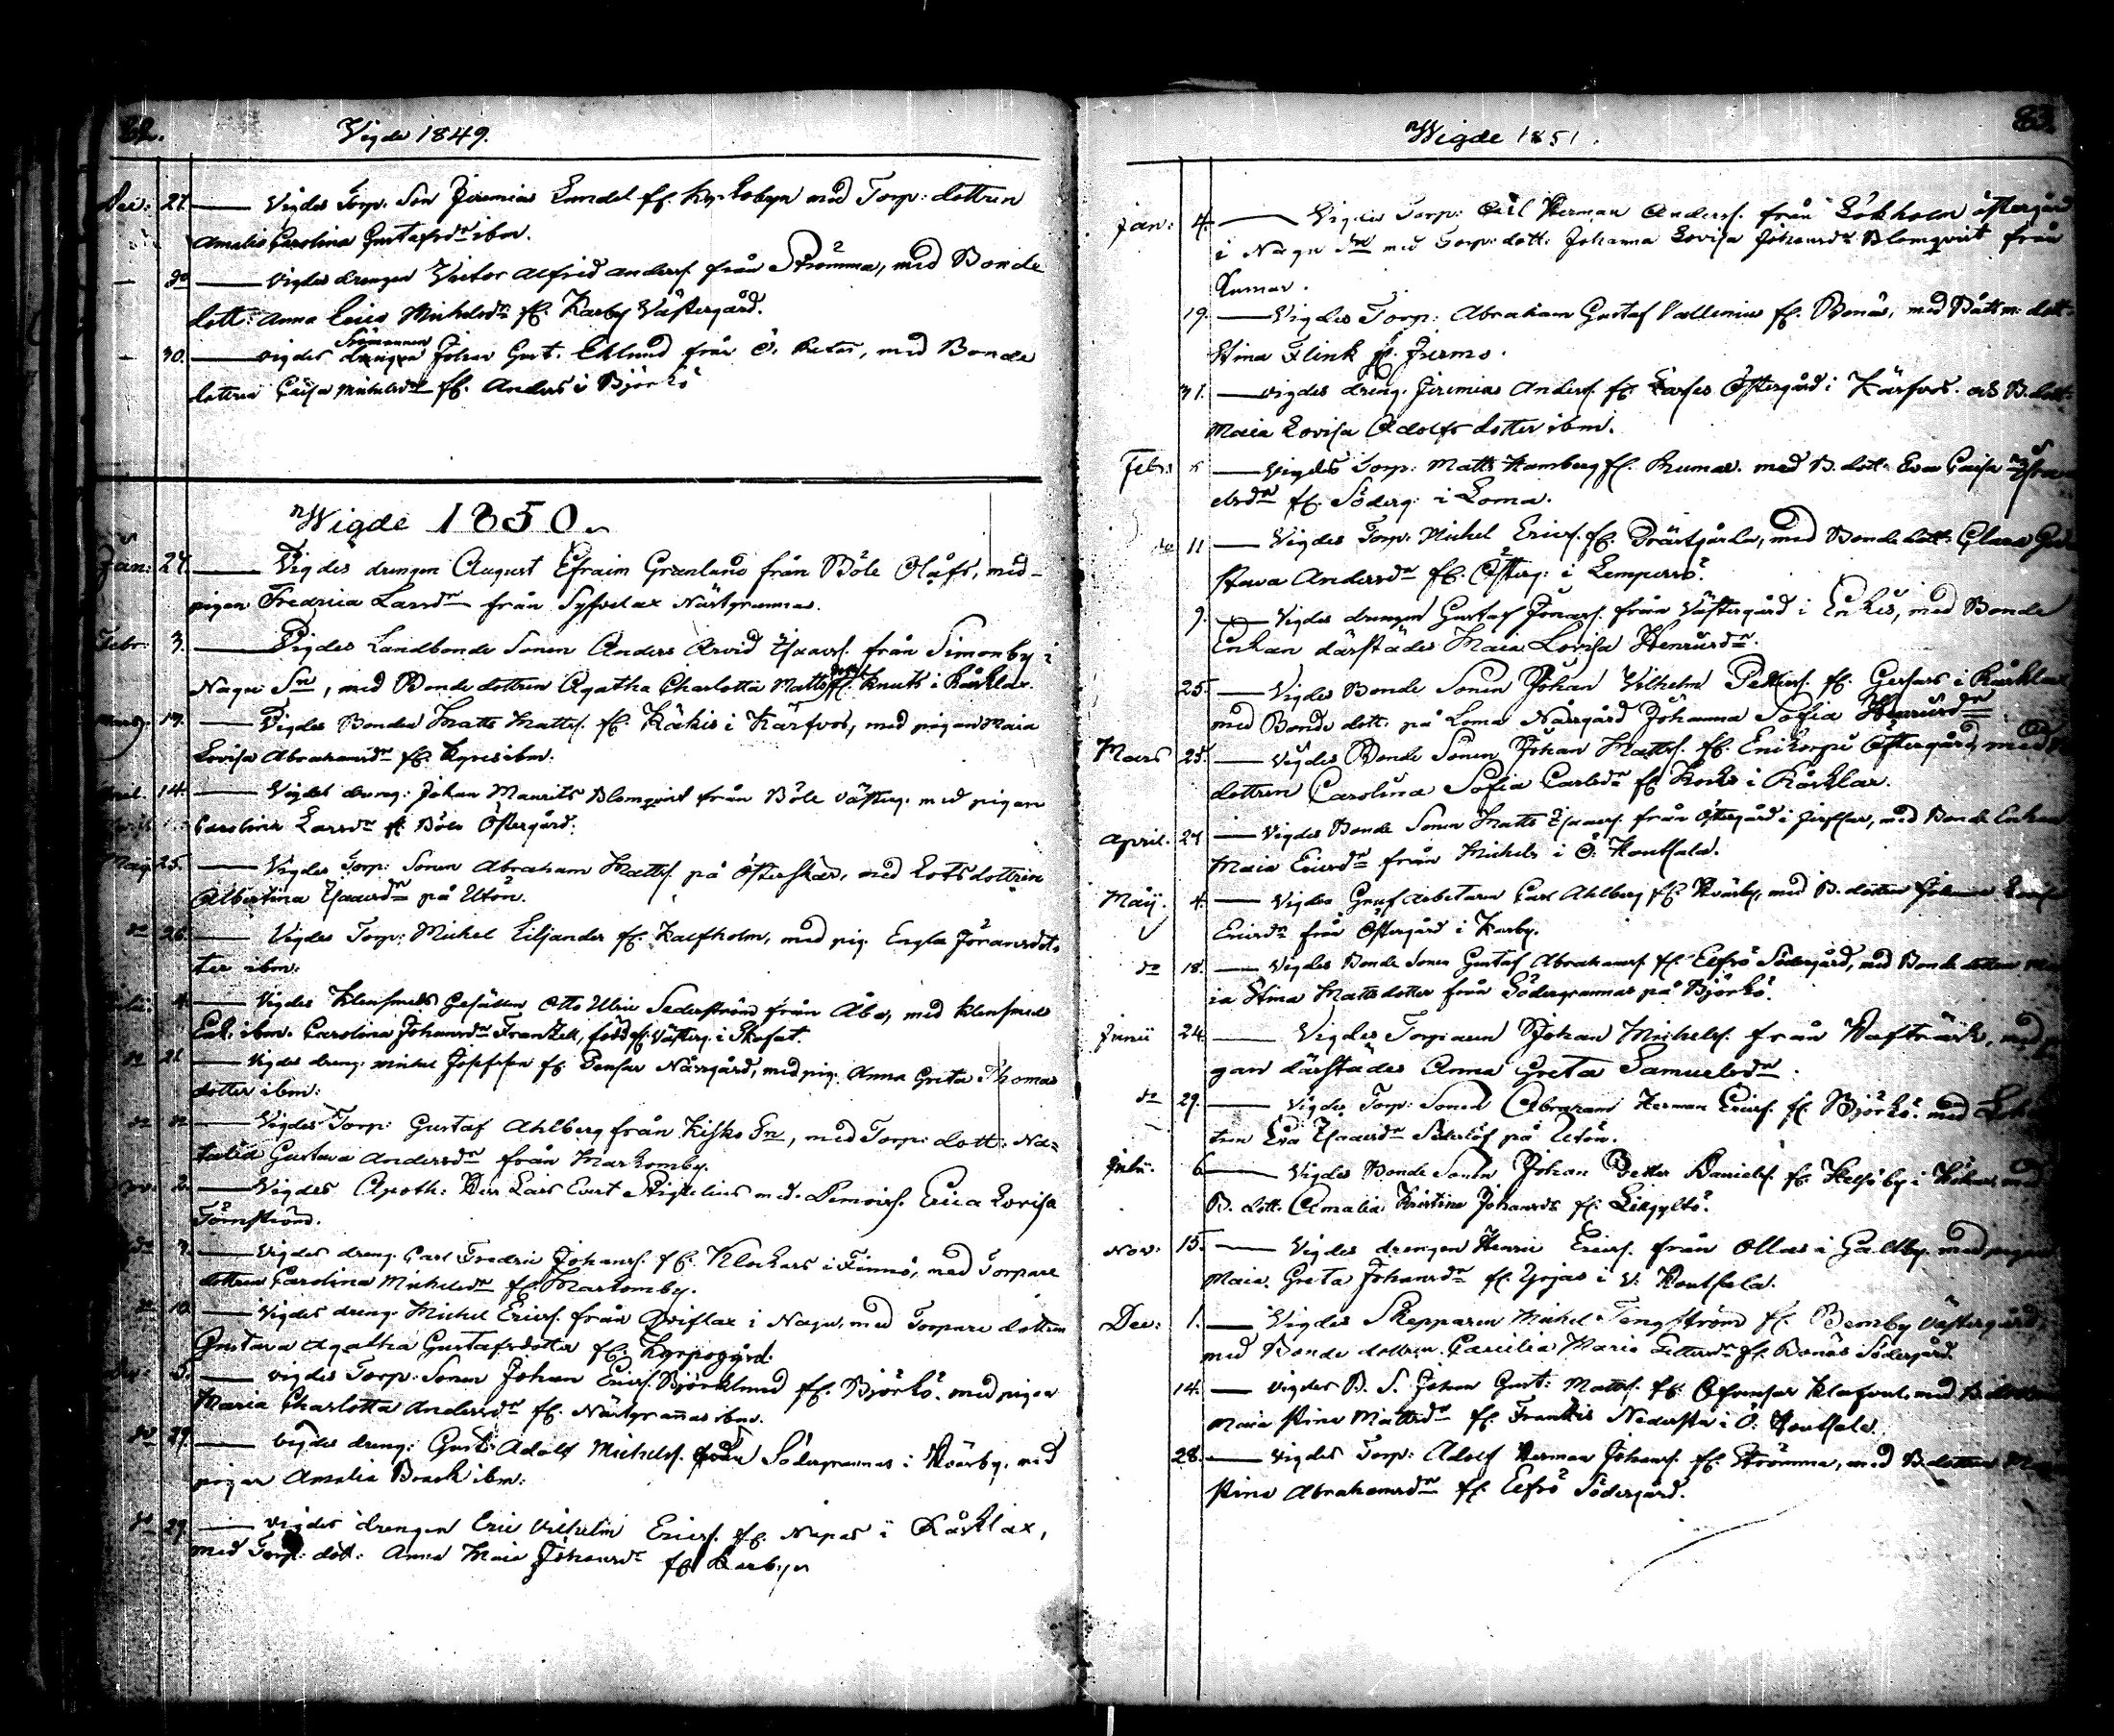 82.
Vigde 1849.
Dec: 27. Vigdes Torp: Son Jeremias Lundel fr. Kyrkobyn med Torp: dottren
Amalia Carolina Gustafsdr ibm.
— do Vigdes drengen Victor Alfrid Anders. från Strömma, med Bonde
dott: Anna Erica Michelsdr fr. Karby Västergård.
Sjömannen
— 30. vigdes drengen Johan Gust. Eklund från Ö. , med Bonde
dottren Caisa Michelsdr fr. Anders i Björkö
Wigde 1850.
Jan: 27. Vigdes drengen August Efraim Granlund från Böle Olofs, med
pigan Fredrica Larsdr från Syfvelax Nästgrannas.
Febr: 3. Vigdes Landbonde Sonen Anders Arvid Isaacs. från Simonby i
dotter
Nagu Sn, med Bonde dottren Agatha Charlotta Matts fr. Knuts i Kårklax.
Mars 17. Vigdes Bonden Matts Matts. fr. Käkis i Kärfvos, med pigan Maia
Lovisa Abrahamsdr fr. ibm.
April. 14. Vigdes dreng: Johan Maurits Blomqvist från Böle västerg. med pigan
Carolina Larsdr fr Böle Östergård.
Maij 25. Vigdes Torp: Sonen Abraham Matts. på Österskär, med Lotsdottren
Albertina Isaacsdr på Utön.
do 26. Vigdes Torp: Michel Liljander fr. Kalfholm, med pig. Engla Göransdot-
ter ibm.
4. Vigdes Klensmeds Gesällen Otto Ulric Sederström från Åbo, med Klensmeds
Enk. ibm. Carolina Johansdr Frantzell, född fr. Västerg. i Skofat.
do 21 Vigdes dreng. Michel Josefsson fr Pensar Norrgård, med pig. Anna Greta Thomas
dotter ibm:
do do Vigdes Torp: Gustaf Ahlberg från Kisko Sn, med Torp: dott: Na-
talia Gustava Andersdr från Markomby.
Nov: 2. Vigdes Apoth: Herr Lars Evert med Demoiss. Erica Lovisa
Törnström.
do 3. Vigdes dreng Carl Fredric Johans. fr. Klockars i Finnö, med Torpare
dottren Carolina Michelsdr fr. Markomby.
do 10. Vigdes dreng. Michel Erics. från Qviflax i Nagu, med Torpare dottren
Gustava Agatha Gustafsdotter fr. Korpogård.
5. vigdes Torp: Sonen Johan Erics. Björklund fr. Björkö med pigan
Maria Charlotta Andersdr fr. Nästgrannas ibm.
do 29 vigdes dreng: Gust: Adolf Michels. från Södergrannas i Kvarby, med
pigan Amalia Brask ibm:
do 29 vigdes drengen Eric Vilhelm Erics. fr. Nepas i Kårklax,
med Torp: dott: Anna Maia Johansdr fr Karbyn
83.
Wigde 1851.
Jan: 4. Vigdes Torp: Carl Herman Anders. från Lökholm östergård
i Nagu Sn med Torp: dott: Johanna Lovisa Johansdr Blomqvist från
Rumar.
19. Vigdes Torp: Abraham Gustaf Vallenius fr. Benäs, med Båtsm: dott.
Stina Flink fr. Jurmo.
31. vigdes dreng. Jeremias Anders. fr. Östergård i Kärfvos. och B. dott:
Maia Lovisa Adolfs dotter ibm.
Febr: Vigdes Torp: Matts Hamberg fr. Rumar. med B. dott: Eva Caisa
elsdr fr. Söderg: i Loma.
do 11 Vigdes Torp: Michel Erics. fr. Prästgården, med Bonde dott: Clara
Stava Andersdr fr. Österg: i Lempersö.
9. Vigdes drengen Gustaf Jonas. från Västergård i Enkis, med Bonde
Enkan därstädes Maia Lovisa Henricsdr
25. Vigdes Bonde Sonen Johan Vilhelm Petters. fr. i Kårklax
med Bonde dott: på Loma Norrgård Johanna Sofia Henricsdr.
Mars 25. Vigdes Bonde Sonen Johan Matts. fr. Enitorpé östergård, med B.
dottren Carolina Sofia Carlsdr fr. Kocks i Kårklax.
April. 27 Vigdes Bonde Sonen Matts Isaacs. från Östergård i , med Bonde Enkan
Maia Ericsdr från Michels i Ö. Houtskala.
Maij. 4. Vigdes Grufarbetaren Carl Ahlberg fr. Kvarby, med B. dottren Johanna Lovisa
Ericsdr från Östergård i Karby.
do 18. Vigdes Bonde Sonen Gustaf Abrahams. fr. Elfsö Södergård, med Bonde dottren Ma
ia Stina Mattsdotter från Södergrannas på Björkö.
Junii 24. Vigdes Torparen Johan Michels. från Vafträsk, med pi
gan därstädes Anna Greta Samuelsdr.
do 29. Vigdes Torp: Sonen Abraham Herman Erics. fr. Björkö. med
tren Eva Isaacsdr Söderlöf på Utön.
Julii: 6 Vigdes Bonde Sonen Johan Petter Daniels. fr. Helsö by i Kökar, med
B. dott. Amalia Kristina Johansdr fr. Lillgyltö.
Nov: 15. Vigdes drengen Henric Erics. från Ollas i Galtby med pigan
Maia Greta Johansdr fr. i V. Houtskala.
Dec: 1. Vigdes Skepparen Michel Tengström fr. Bemby Västergård,
med Bonde dottren Caecilia Maria Pettersdr fr. Benäs Södergård.
14. vigdes B. S. Johan Gust: Matts. fr. med B. dottren
Maia Stina Mattsdr fr. Frankis Nedersta i Ö. Houtskala.
28. vigdes Torp: Adolf Herman Johans. fr. Strömma, med B. dottren
Stina Abrahamsdr fr. Elfsö Södergård.